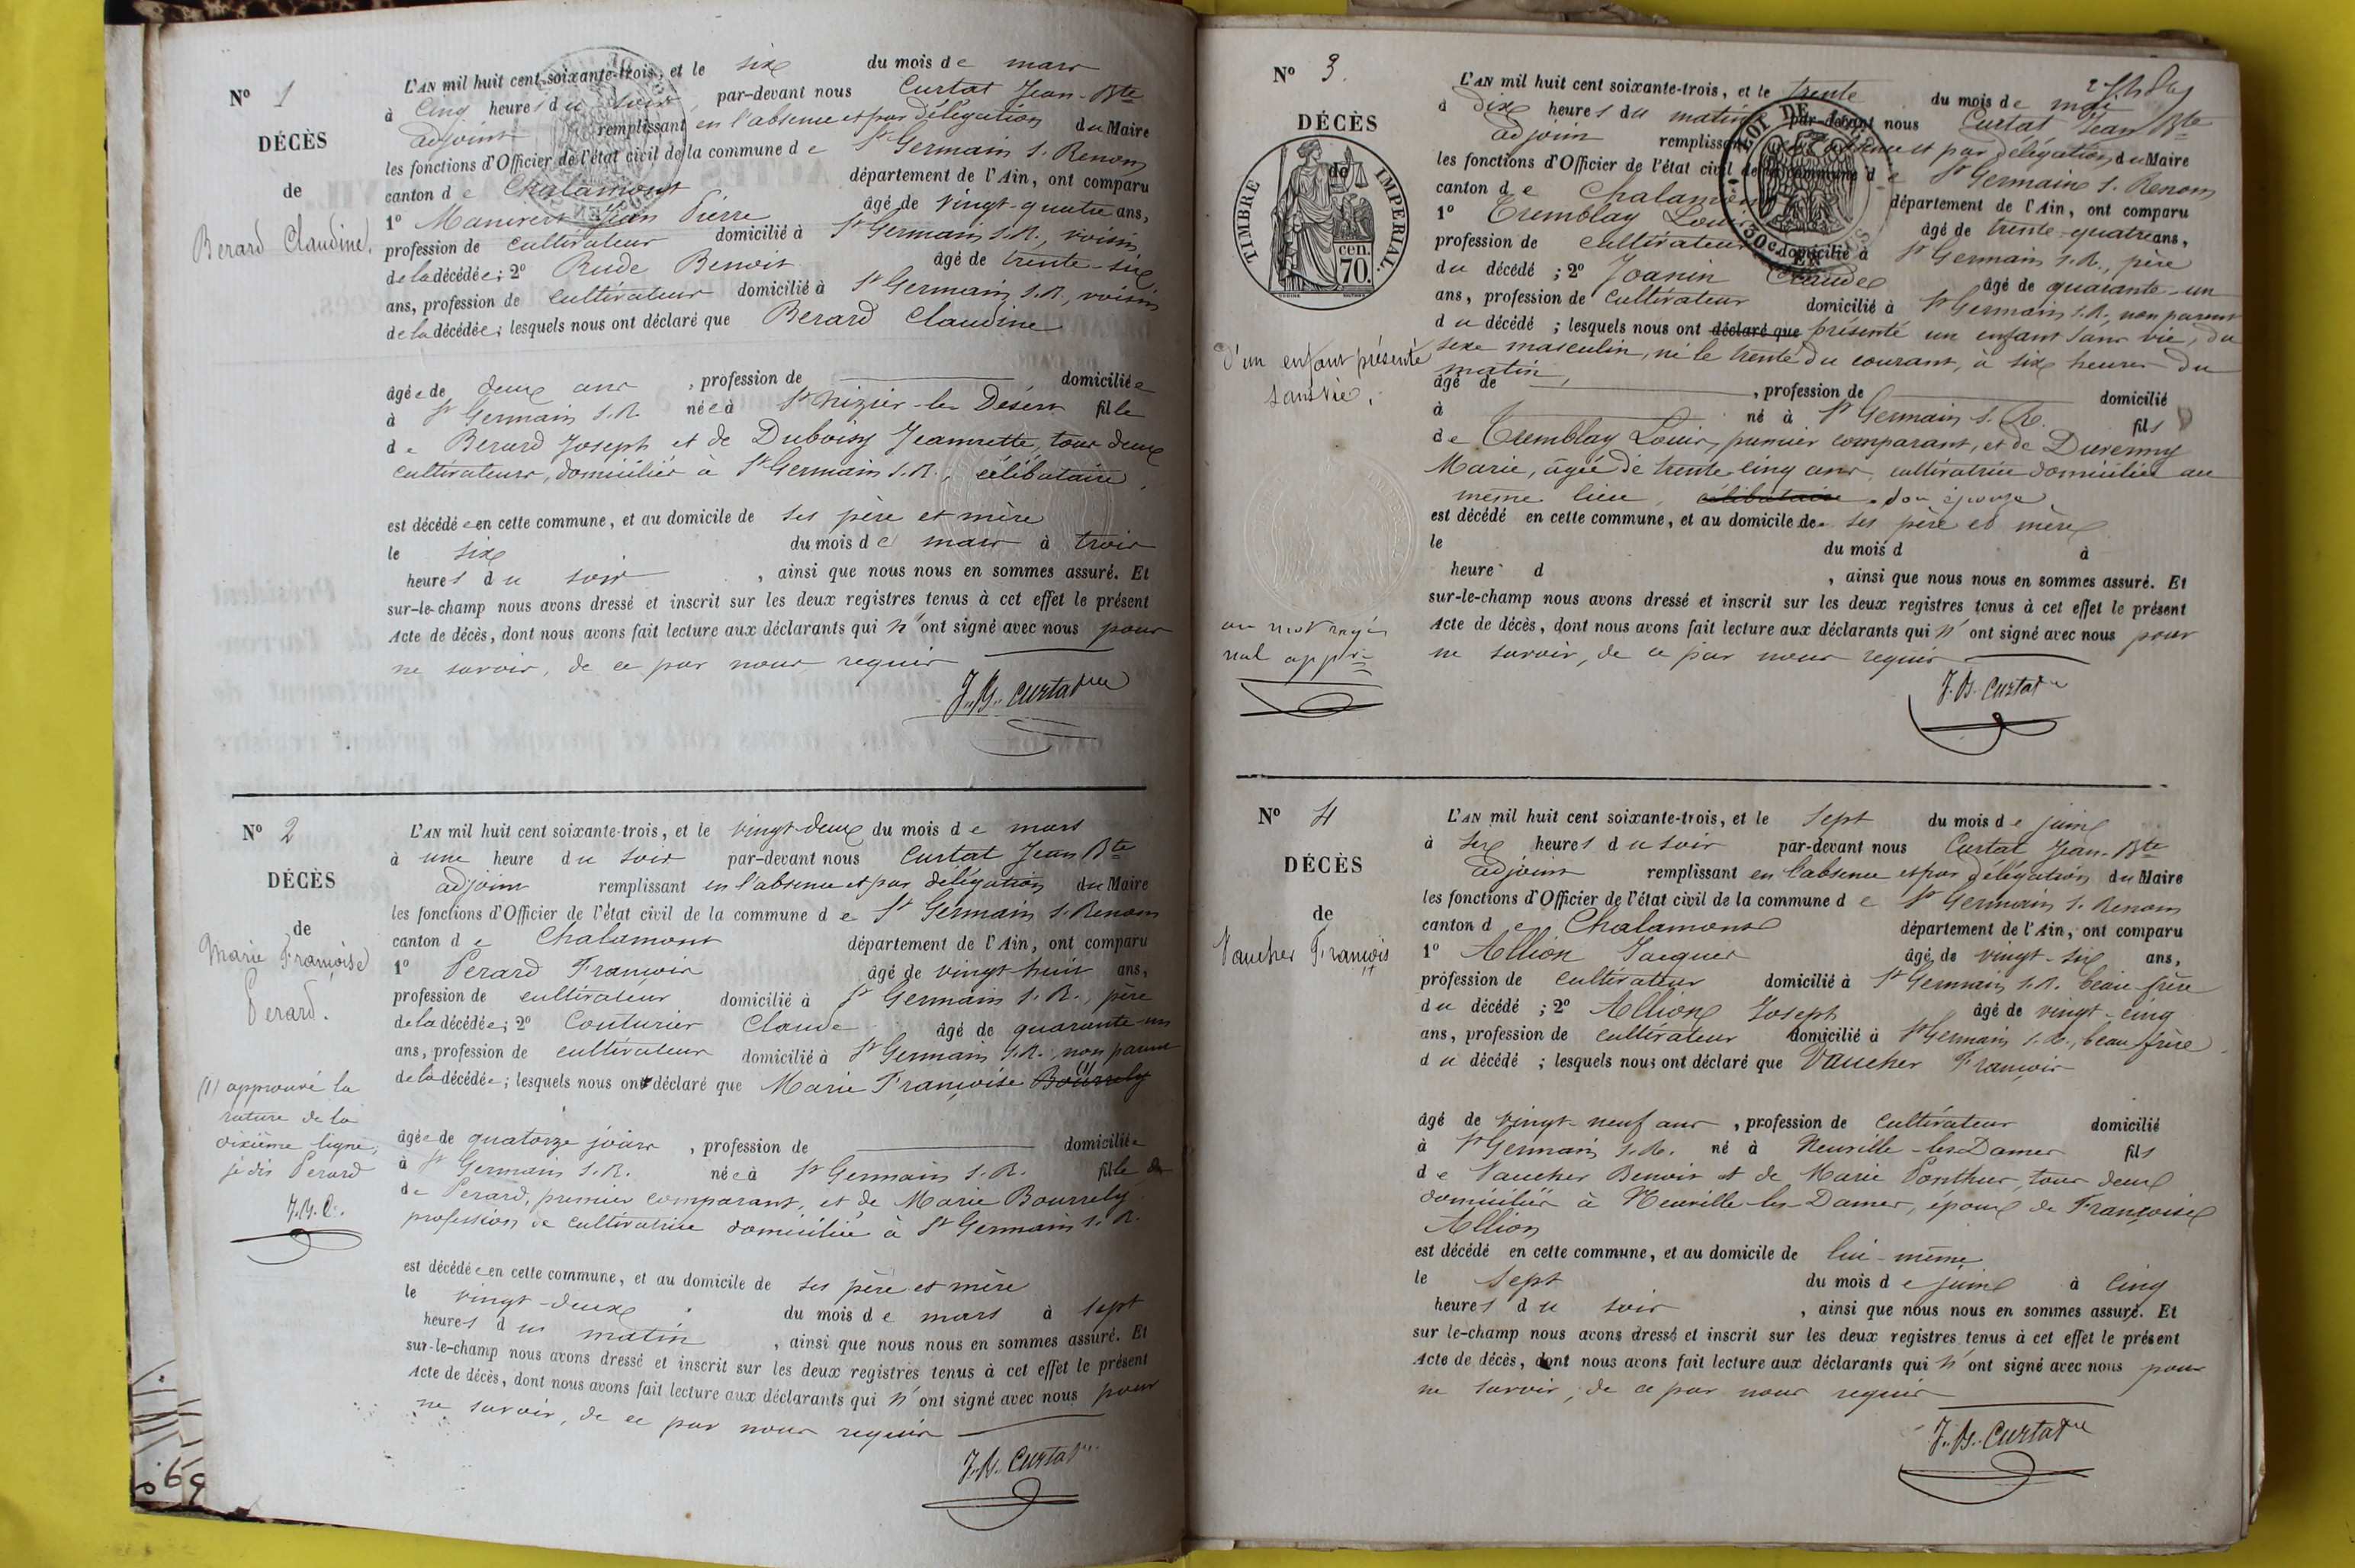 N° 1
DÉCÈS
de
Berard Claudine.
L'AN mil huit cent soixante-trois, et le six du mois de mars
à cinq heures du soir, par-devant nous Curtat Jean-Bte
adjoint remplissant en l'absence et par délégation du Maire
les fonctions d'Officier de l'état civil de la commune de St Germain s. Renom
canton de Chalamont département de l'Ain, ont comparu
1° Jean Pierre âgé de vingt-quatre ans,
profession de cultivateur domicilié à St Germain s.R., voisin
de la décédée; 2° Rude Benoit âgé de trente-six
ans, profession de cultivateur domicilié à St Germain s.R., voisin
de la décédée; lesquels nous ont déclaré que Berard Claudine
âgée de deux ans, profession de domiciliée
à St Germain s.R. née à St Nizier-le-Désert fille
de Berard Joseph et de Duboisy Jeannette, tous deux
cultivateurs, domiciliés à St Germain s.R., célibataire,
est décédée en cette commune, et au domicile de ses père et mère
le six du mois de mars à trois
heures du soir, ainsi que nous nous en sommes assuré. Et
sur-le-champ nous avons dressé et inscrit sur les deux registres tenus à cet effet le présent
Acte de décès, dont nous avons fait lecture aux déclarants qui n'ont signé avec nous pour
ne savoir, de ce par nous requis
J. B. Curtat
N° 2
DÉCÈS
de
Marie Françoise
Perard.
(1) approuvé la
rature de la
dixième ligne,
je dis Perard
J. B. C.
L'AN mil huit cent soixante-trois, et le vingt-deux du mois de mars
à une heure du soir par-devant nous Curtat Jean Bte
adjoint remplissant en l'absence et par délégation du Maire
les fonctions d'Officier de l'état civil de la commune de St Germain s. Renom
canton de Chalamont département de l'Ain, ont comparu
1° Perard François âgé de vingt-huit ans,
profession de cultivateur domicilié à St Germain s.R., père
de la décédée; 2° Couturier Claude âgé de quarante-un
ans, profession de cultivateur domicilié à St Germain s.R., non parent
de la décédée; lesquels nous ont déclaré que Marie Françoise Bourrely (1)
âgée de quatorze jours, profession de domiciliée
à St Germain s.R. née à St Germain s.R. fille de
de Perard, premier comparant, et de Marie Bourrely
profession de cultivatrice domiciliée à St Germain s.R.
est décédée en cette commune, et au domicile de ses père et mère
le vingt-deux du mois de mars à sept
heures du matin, ainsi que nous nous en sommes assuré. Et
sur-le-champ nous avons dressé et inscrit sur les deux registres tenus à cet effet le présent
Acte de décès, dont nous avons fait lecture aux déclarants qui n'ont signé avec nous pour
ne savoir, de ce par nous requis
J. B. Curtat
N° 3.
DÉCÈS
de
TIMBRE IMPERIAL.
70. cen.
d'un enfant présenté
sans vie.
un mot rayé
nul
L'AN mil huit cent soixante-trois, et le trente du mois de mai
à dix heures du matin par-devant nous Curtat Jean Bte
adjoint remplissant en l'absence et par délégation du Maire
les fonctions d'Officier de l'état civil de la commune de St Germain s. Renom
canton de Chalamont département de l'Ain, ont comparu
1° Tremblay Louis âgé de trente-quatre ans,
profession de cultivateur domicilié à St Germain s.R., père
du décédé; 2° Joanin Claude âgé de quarante-un
ans, profession de cultivateur domicilié à St Germain s.R., non parent
du décédé; lesquels nous ont déclaré que présenté un enfant sans vie, du
sexe masculin, né le trente du courant, à six heures du
matin,
âgé de, profession de domicilié
à né à St Germain s. R. fils
de Tremblay Louis, premier comparant, et de Duvernay
Marie, âgée de trente-cinq ans, cultivatrice domiciliée au
même lieu, célibataire son épouse
est décédé en cette commune, et au domicile de ses père et mère
le du mois d à
heure d, ainsi que nous nous en sommes assuré. Et
sur-le-champ nous avons dressé et inscrit sur les deux registres tenus à cet effet le présent
Acte de décès, dont nous avons fait lecture aux déclarants qui n'ont signé avec nous pour
ne savoir, de ce par nous requis
J. B. Curtat
N° 4
DÉCÈS
de
Vaucher François
L'AN mil huit cent soixante-trois, et le sept du mois de juin
à six heures du soir par-devant nous Curtat Jean-Bte
adjoint remplissant en l'absence et par délégation du Maire
les fonctions d'Officier de l'état civil de la commune de St Germain s. Renom
canton de Chalamont département de l'Ain, ont comparu
1° Allion Jacques âgé de vingt-six ans,
profession de cultivateur domicilié à St Germain s.R. beau-frère
du décédé; 2° Allion Joseph âgé de vingt-cinq
ans, profession de cultivateur domicilié à St Germain s.R., beau-frère
du décédé; lesquels nous ont déclaré que Vaucher François
âgé de vingt-neuf ans, profession de cultivateur domicilié
à St Germain s.R. né à Neuville-les-Dames fils
de Vaucher Benoit et de Marie Ponthus, tous deux
domiciliés à Neuville-les-Dames, époux de Françoise
Allion
est décédé en cette commune, et au domicile de lui-même
le sept du mois de juin à cinq
heures du soir, ainsi que nous nous en sommes assuré. Et
sur le-champ nous avons dressé et inscrit sur les deux registres tenus à cet effet le présent
Acte de décès, dont nous avons fait lecture aux déclarants qui n'ont signé avec nous pour
ne savoir, de ce par nous requis
J. B. Curtat